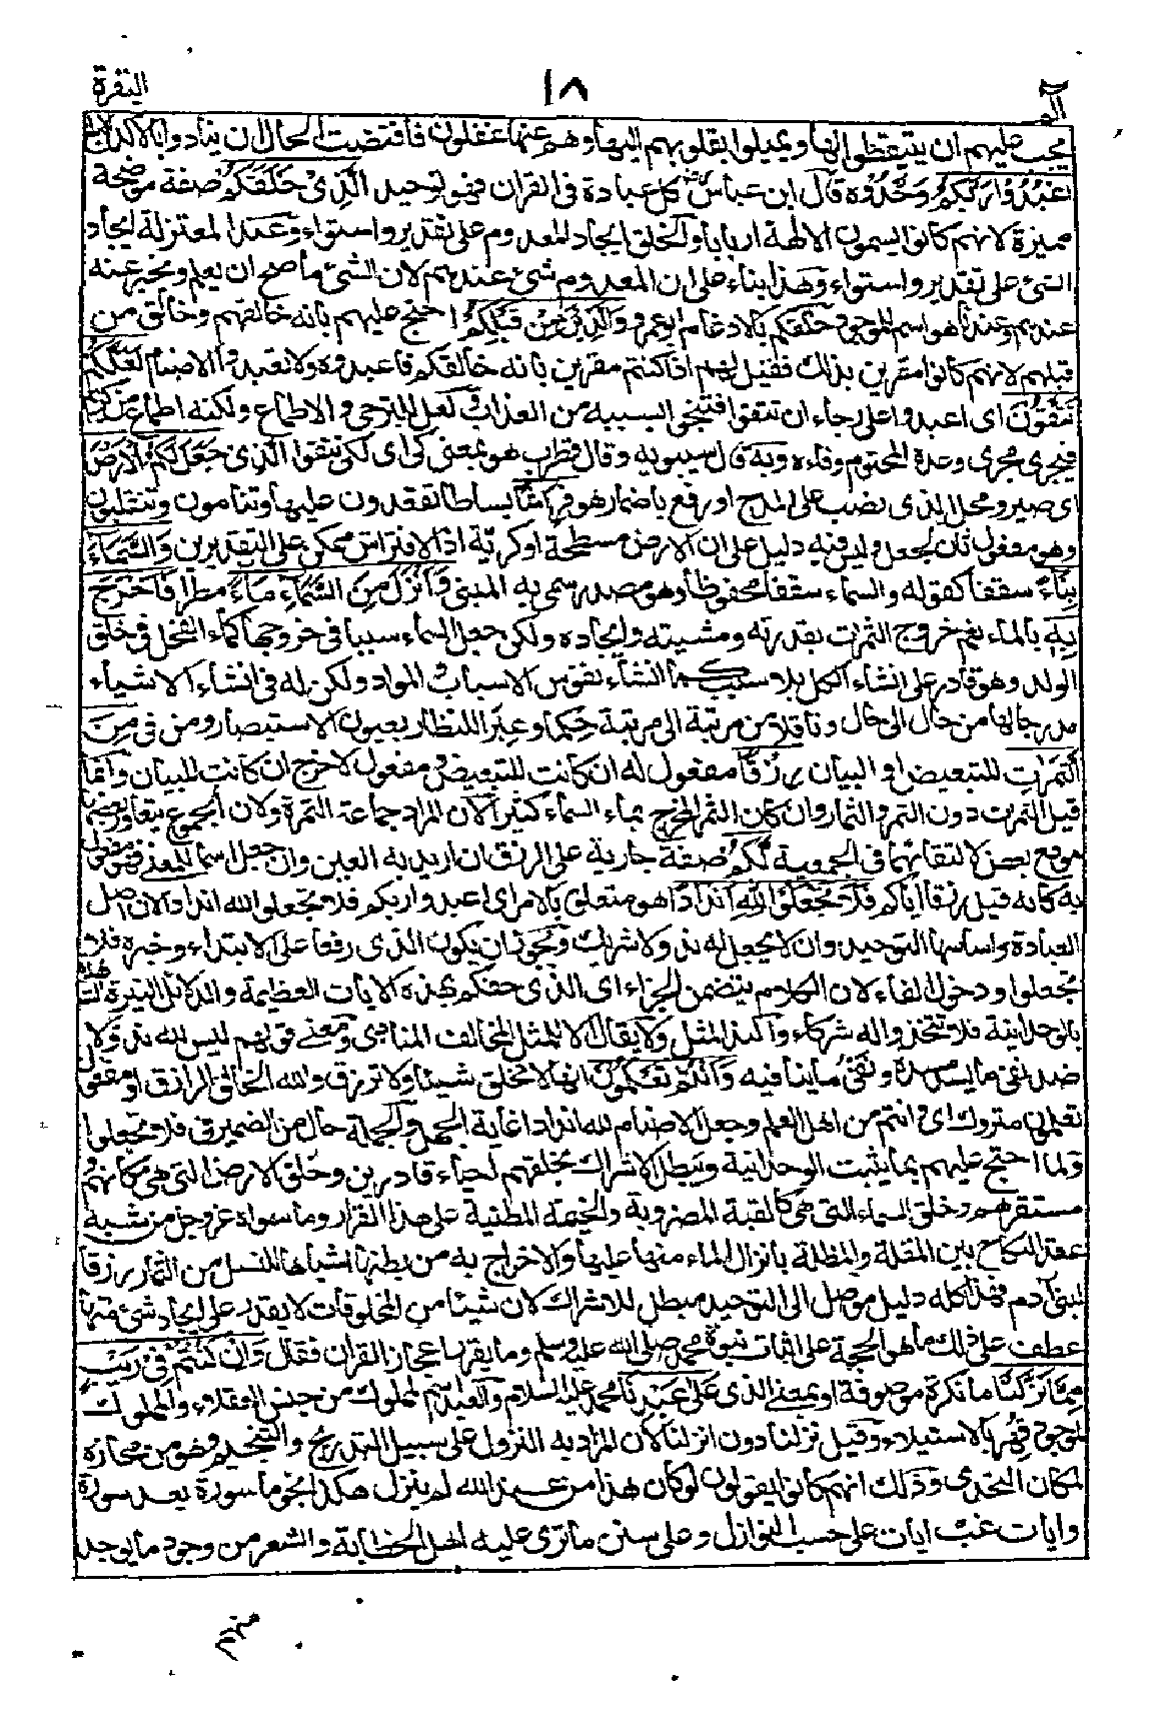 الم ١٨ البقرة
يجب عليهم ان يتيقظوا لها ويميلوا بقلوبهم اليها وهم عنها غفلون فاقتضت الحال ان ينادوا بالآكد الابلغ
اعْبُدُوْا رَبَّكُمُ وَحِّدُوْه قال ابن عباس كل عبادة فى القران فهو توحيد الَّذِىْ خَلَقَكُمْ صفة موضحة
مميزة لانهم كانوا يسمون الالهة اربابا والخلق ايجاد المعدوم على تقدير واستواء وعند المعتزلة ايجاد
الشئ على تقدير واستواء وهذا بناء على ان المعدوم شئ عندهم لان الشئ ما صح ان يعلم ويخبر عنه
عندهم وعندنا هو اسم للموجود خلقكم بالادغام ابوعمرو وَالَّذِيْنَ مِنْ قَبْلِكُمْ احتج عليهم بانه خالقهم وخالق من
قبلهم لانهم كانوا مقرين بذلك فقيل لهم ان كنتم مقرين بانه خالقكم فاعبدوه ولا تعبدوا الاصنام لَعَلَّكُمْ
تَتَّقُوْنَ اى اعبدوا على رجاء ان تتقوا فتنجوا بسببه من العذاب ولعل للترجى والاطماع ولكنه اطماع من كريم
فيجرى مجرى وعده المحتوم وفاءه وبه قال سيبويه وقال قطرب هو بمعنى كى اى لكى تتقوا الَّذِىْ جَعَلَ لَكُمُ الْاَرْضَ
اى صير ومحل الذى نصب على المدح او رفع باضمار هو فِرَاشًا بساطا تقعدون عليها وتنامون وتتقلبون
وهو مفعول ثان لجعل وليس فيه دليل على ان الارض مسطحة او كرية اذ الافتراش ممكن على التقديرين وَالسَّمَآءَ
بِنَآءً سقفا كقوله والسماء سقفا محفوظا وهو مصدر سمى به المبنى وَاَنْزَلَ مِنَ السَّمَآءِ مَآءً مطرا فَاَخْرَجَ
بِهٖ بالماء نعم خروج الثمرات بقدرته ومشيته وايجاده ولكن جعل الماء سببا فى خروجها كماء الفحل فى خلق
الولد وهو قادر على انشاء الكل بلا سبب كما انشاء نفوس الاسباب والمواد ولكن له فى انشاء الاشياء
مدرجا لها من حال الى حال وناقلا من مرتبة الى مرتبة حِكَما وعِبَرا للنظار بعيون الاستبصار ومن فى مِنَ
الثَّمَرٰتِ للتبعيض او البيان رِزْقًا مفعول له ان كانت للتبعيض ومفعول لاخرج ان كانت للبيان وانما
قيل الثمرات دون الثمر والثمار وان كان الثمر المخرج بماء السماء كثيرا لان المراد جماعة الثمرة ولان الجموع يتعاور بعضها
موقع بعض لالتقائها فى الجمعية لَّكُمْ صفة جارية على الرزق ان اريد به العين وان جعل اسما للمعنى فهو مفعول
به كانه قيل رزقا اياكم فَلَا تَجْعَلُوْا لِلّٰهِ اَنْدَادًا هو متعلق بالامر اى اعبدوا ربكم فلا تجعلوا لله اندادا لان اصل
العبادة واساسها التوحيد وان لا يجعل له ند ولا شريك ويجوز ان يكون الذى رفعا على الابتداء وخبره فلا
تجعلوا ودخول الفاء لان الكلام يتضمن الجزاء اى الذى حفكم بهذه الآيات العظيمة والدلائل النيرة الشاهدة
بالوحدانية فلا تتخذوا له شركاء والند المثل ولا يقال الا للمثل المخالف المناوى ومعنى قولهم ليس لله ند ولا
ضد نفى ما يسد مسده ونفى ما ينافيه وَّاَنْتُمْ تَعْلَمُوْنَ انها لا تخلق شيئا ولا ترزق والله الخالق الرازق او مفعول
تعلمون متروك اى وانتم من اهل العلم وجعل الاصنام لله اندادا غاية الجهل والجملة حال من الضمير فى فلا تجعلوا
ولما احتج عليهم بما يثبت الوحدانية ويبطل الاشراك بخلقهم احياء قادرين وخلق الارض التى هى مكانهم
مستقرهم وخلق السماء التى هى كالقبة المضروبة والخيمة المطنبة على هذا القرار وما سواه عز وجل من شبه
عقد النكاح بين المقلة والمظلة بانزال الماء منها عليها والاخراج به من بطنها اشباه النسل من الثمار رزقا
لبنى آدم فهذا كله دليل موصل الى التوحيد مبطل للاشراك لان شيئا من المخلوقات لا يقدر على ايجاد شئ منها
عطف على ذلك ما هو الحجة على اثبات نبوة محمد صلى الله عليه وسلم وما يقرر اعجاز القران فقال وَاِنْ كُنْتُمْ فِىْ رَيْبٍ
مِّمَّا نَزَّلْنَا ما نكرة موصوفة او بمعنى الذى عَلٰى عَبْدِنَا محمد عليه السلام والعبد اسم لمملوك من جنس العقلاء والمملوك
موجود قهر بالاستيلاء وقيل نزلنا دون انزلنا لان المراد به النزول على سبيل التدريج والتنجيم وهو من محازه
لمكان التحدى وذلك انهم كانوا يقولون لو كان هذا من عند الله لم ينزل هكذا نجوما سورة بعد سورة
وايات غب ايات على حسب النوازل وعلى سنن ما ترى عليه اهل الخطابة والشعر من وجود ما يوجد
منهم